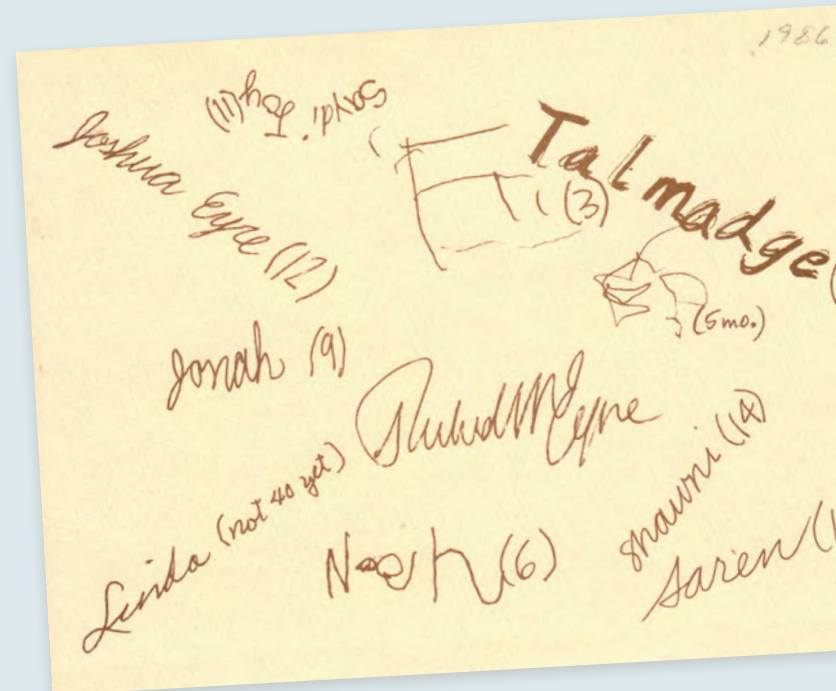 1986
Saydi Joy (11)
Joshua Eyre (12)
(3)
Talmadge (
(5 mo.)
Jonah (9)
Richard M Eyre
Linda (not 40 yet)
Noah (6)
Shawni (14)
Saren (1